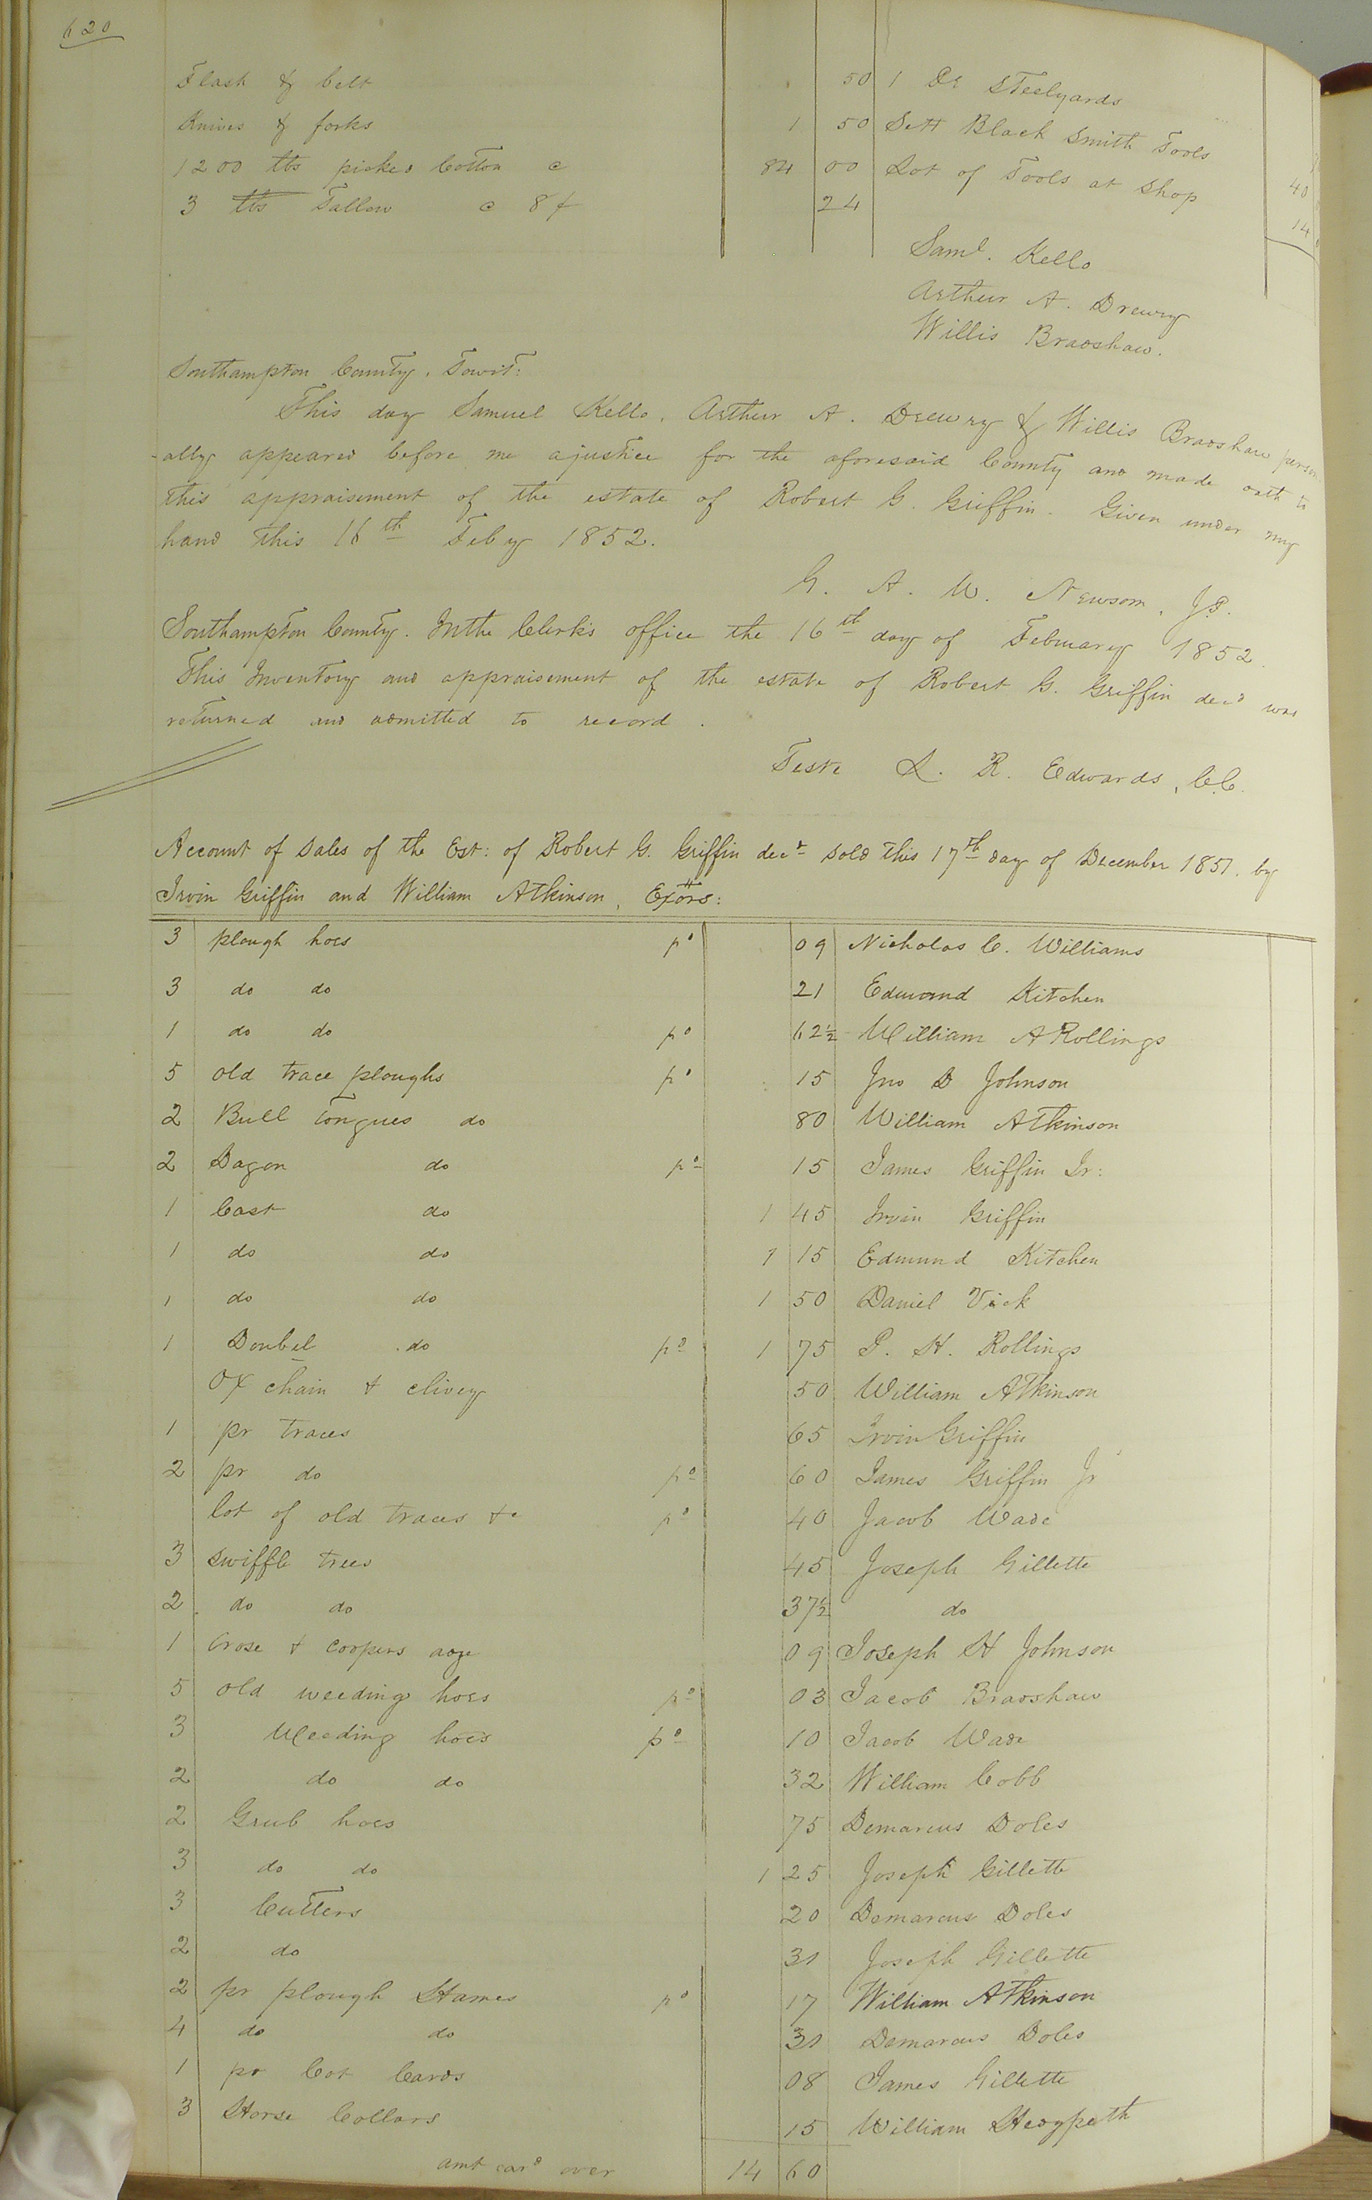 620
Flask & belt 50 1 Do Steelyards
Knives & forks 1 50 Sett Black Smith Tools
1200 lbs picked Cotton c 84 00 Lot of Tools at Shop 40
3 lbs Tallow c 8 24 14
Saml. Kello
Arthur A. Drewry
Willis Bradshaw.
Southampton County. Towit:
This day Samuel Kello, Arthur A. Drewry & Willis Bradshaw person
-ally appeared before me a justice for the aforesaid County and made oath to
this appraisement of the estate of Robert G. Griffin. Given under my
hand this 16th Feby 1852.
G. A. W. Newsom, JP.
Southampton County. In the Clerk's office the 16th day of February 1852.
This Inventory and appraisement of the estate of Robert G. Griffin decd was
returned and admitted to record.
Teste L. R. Edwards, C.C.
Account of Sales of the Est: of Robert G. Griffin decd sold this 17th day of December 1851. by
Irvin Griffin and William Atkinson, Exors:
3 plough hoes pd 09 Nicholas C. Williams
3 do do 21 Edmond Kitchen
1 do do pd 62½ William A Rollings
5 old trace ploughs pd 15 Jno D Johnson
2 Bull Tongues do 80 William Atkinson
2 Dagon do pd 15 James Griffin Jr:
1 Cast do 1 45 Irvin Griffin
1 do do 1 15 Edmund Kitchen
1 do do 1 50 Daniel Vick
1 Doubel do pd 1 75 P. H. Rollings
Ox chain & clivey 50 William Atkinson
1 pr traces 65 Irvin Griffin
2 pr do pd 60 James Griffin Jr
lot of old traces &c pd 40 Jacob Wade
3 swiffle trees 45 Joseph Gillette
2 do do 37½ do
1 Crose & coopers adze 09 Joseph H Johnson
5 old weeding hoes pd 03 Jacob Bradshaw
3 Weeding hoes pd 10 Jacob Wade
2 do do 32 William Cobb
2 Grub hoes 75 Demarcus Doles
3 do do 1 25 Joseph Gillette
3 Cutters 20 Demarcus Doles
2 do 31 Joseph Gillette
2 pr plough Hames pd 17 William Atkinson
4 do do 31 Demarcus Doles
1 pr Cot Cards 08 James Gillette
3 Horse Collars 15 William Hedgpeth
amt card over 14 60